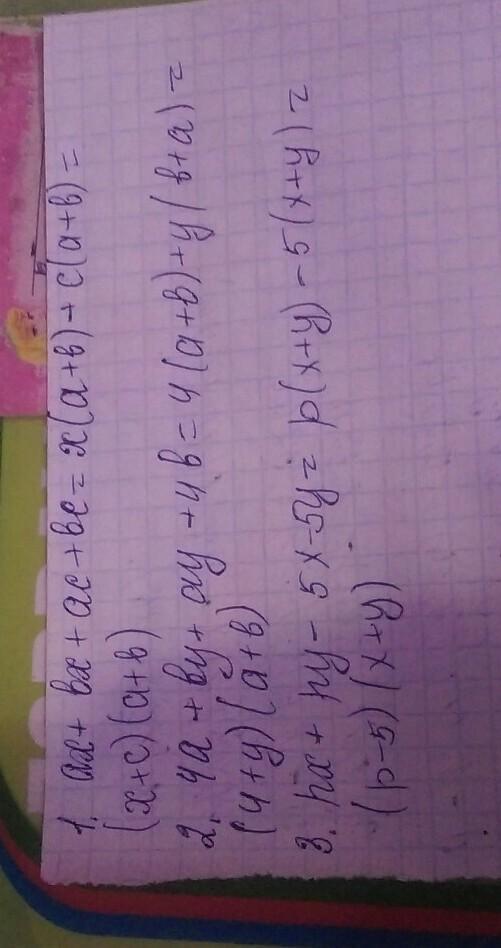 1. ax + bx + ac + bc = x(a+b) + c(a+b) =
(x+c)(a+b)
2. 4a + by + ay + 4b = 4(a+b) + y(b+a) =
(4+y)(a+b)
3. px + py - 5x - 5y = p(x+y) - 5(x+y) =
(p-5)(x+y)